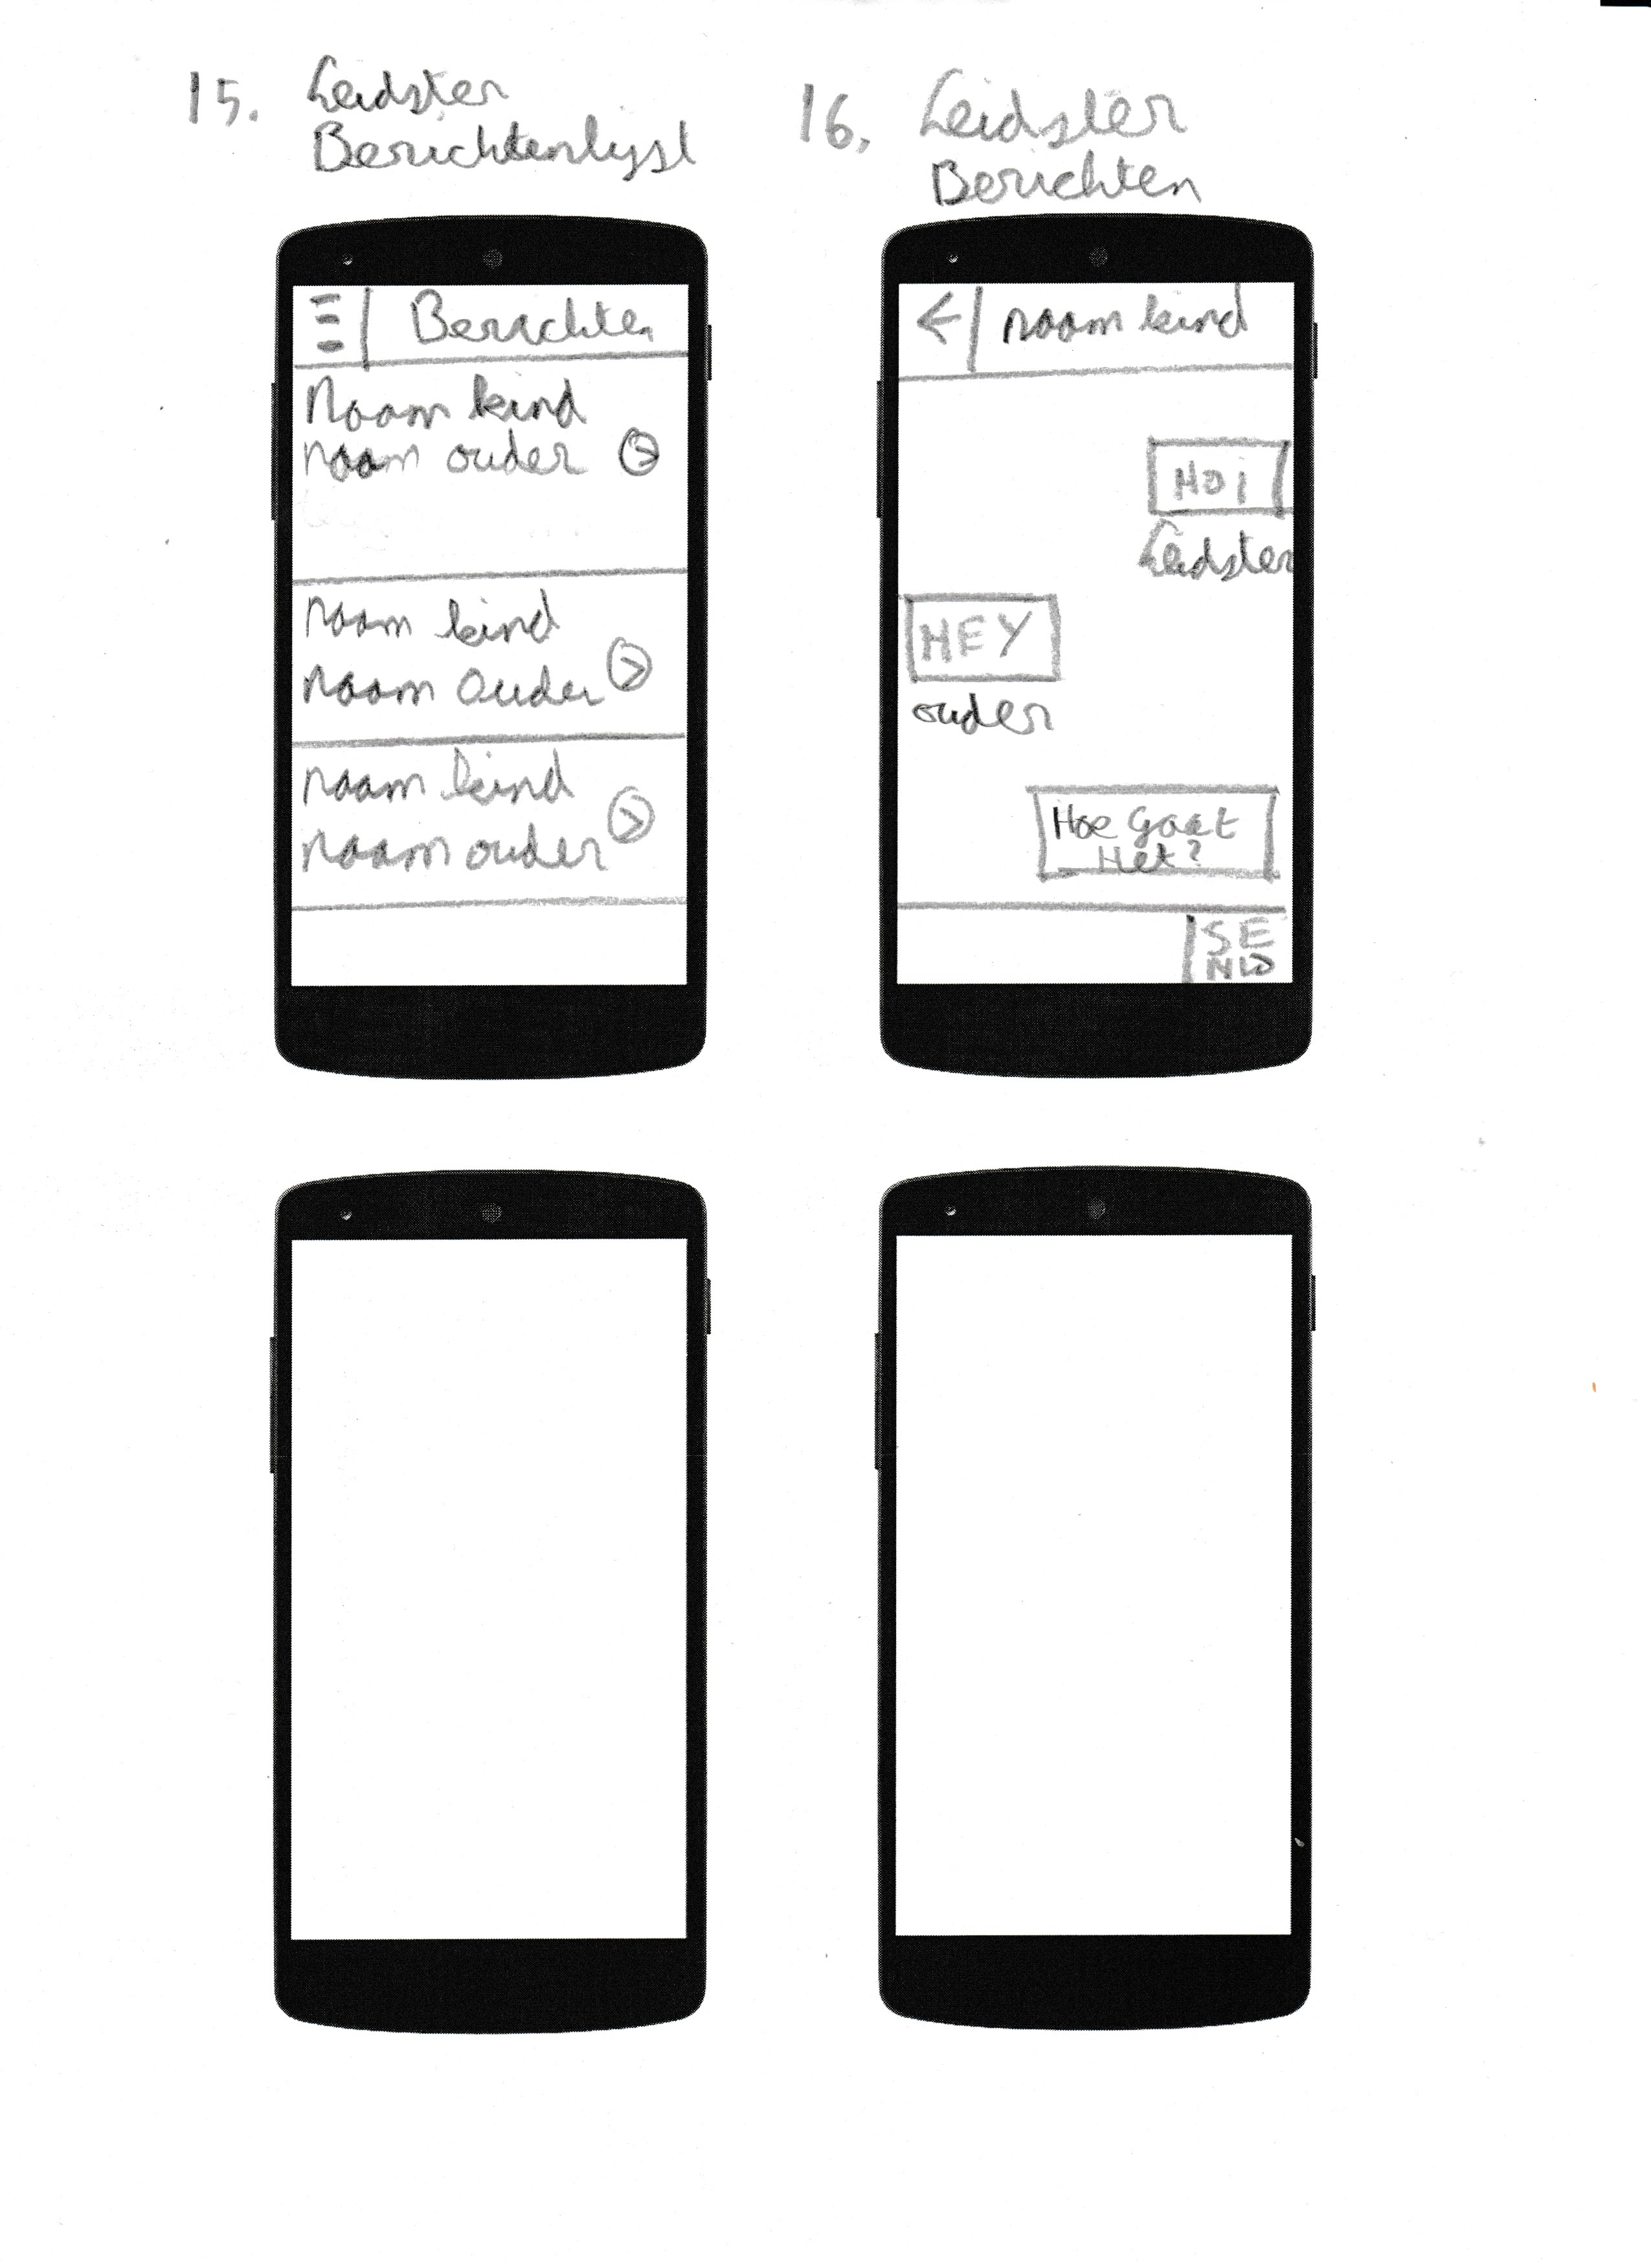 15. Leidster
Berichtenlijst
Berichten
Naam kind
naam ouder
naam kind
naam ouder
naam kind
naam ouder
16. Leidster
Berichten
naam kind
HOi
Leidster
HEY
ouder
Hoe Gaat
Het?
SE
ND